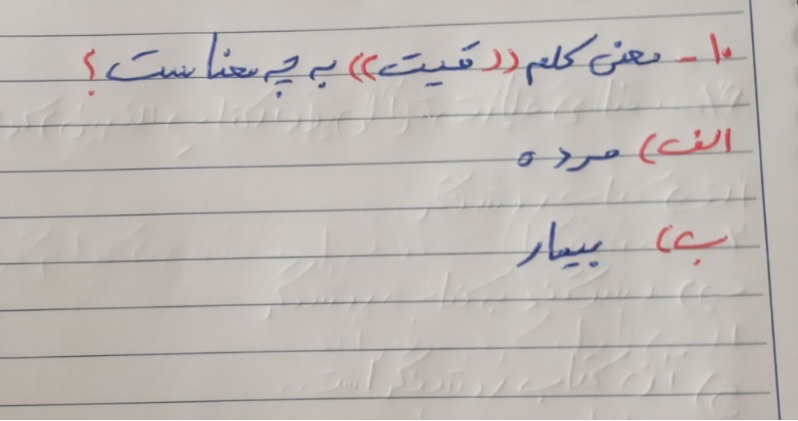 ۱۰- معنی کلمه ((میت)) به چه معناست؟
الف) مرده
ب) بیمار